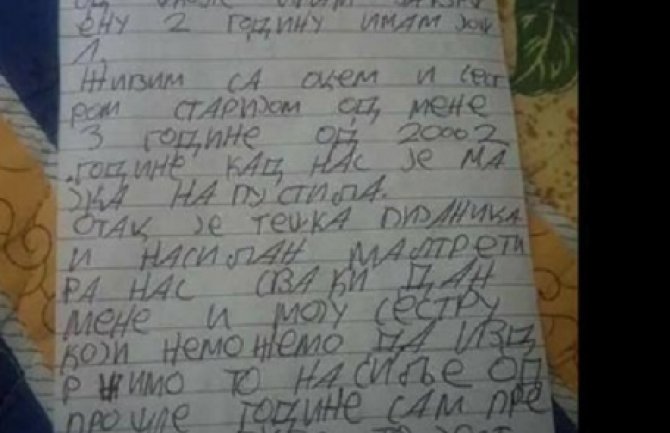 ЕНУ 2 ГОДИНУ ИМАМ
Л.
ЖИВИМ СА ОЦЕМ И СЕСТ
РОМ СТАРИЈОМ ОД МЕНЕ
3 ГОДИНЕ ОД 20002
.ГОДИНЕ КАД НАС ЈЕ МА
ЈКА НАПУСТИЛА.
ОТАЦ ЈЕ ТЕШКА ПИЈАНИЧА
И НАСИЛАН МАЛТРЕТИ
РА НАС СВАКИ ДАН
МЕНЕ И МОЈУ СЕСТРУ
КОЈИ НЕМОЖЕМО ДА ИЗД
РЖИМО ТО НАСИЉЕ ОД
ПРОШЛЕ ГОДИНЕ САМ ПРЕ